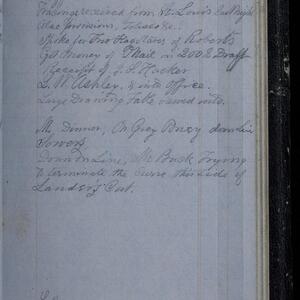 Tracings received from St. Louis
Also provisions, tobacco &c.
Spike for Two flag Stares of Roberts
Got money of Nail on 200 $ Draft
Receipt of J. S. Hacker
L. W. Ashley, & into Office.
Large Drawing table moved into.
M, Dinner, On Grey Poney down Line
Towers
Down on Line, Mr Buck Trying
to terminate the Curve this side of
Lander's Cut.